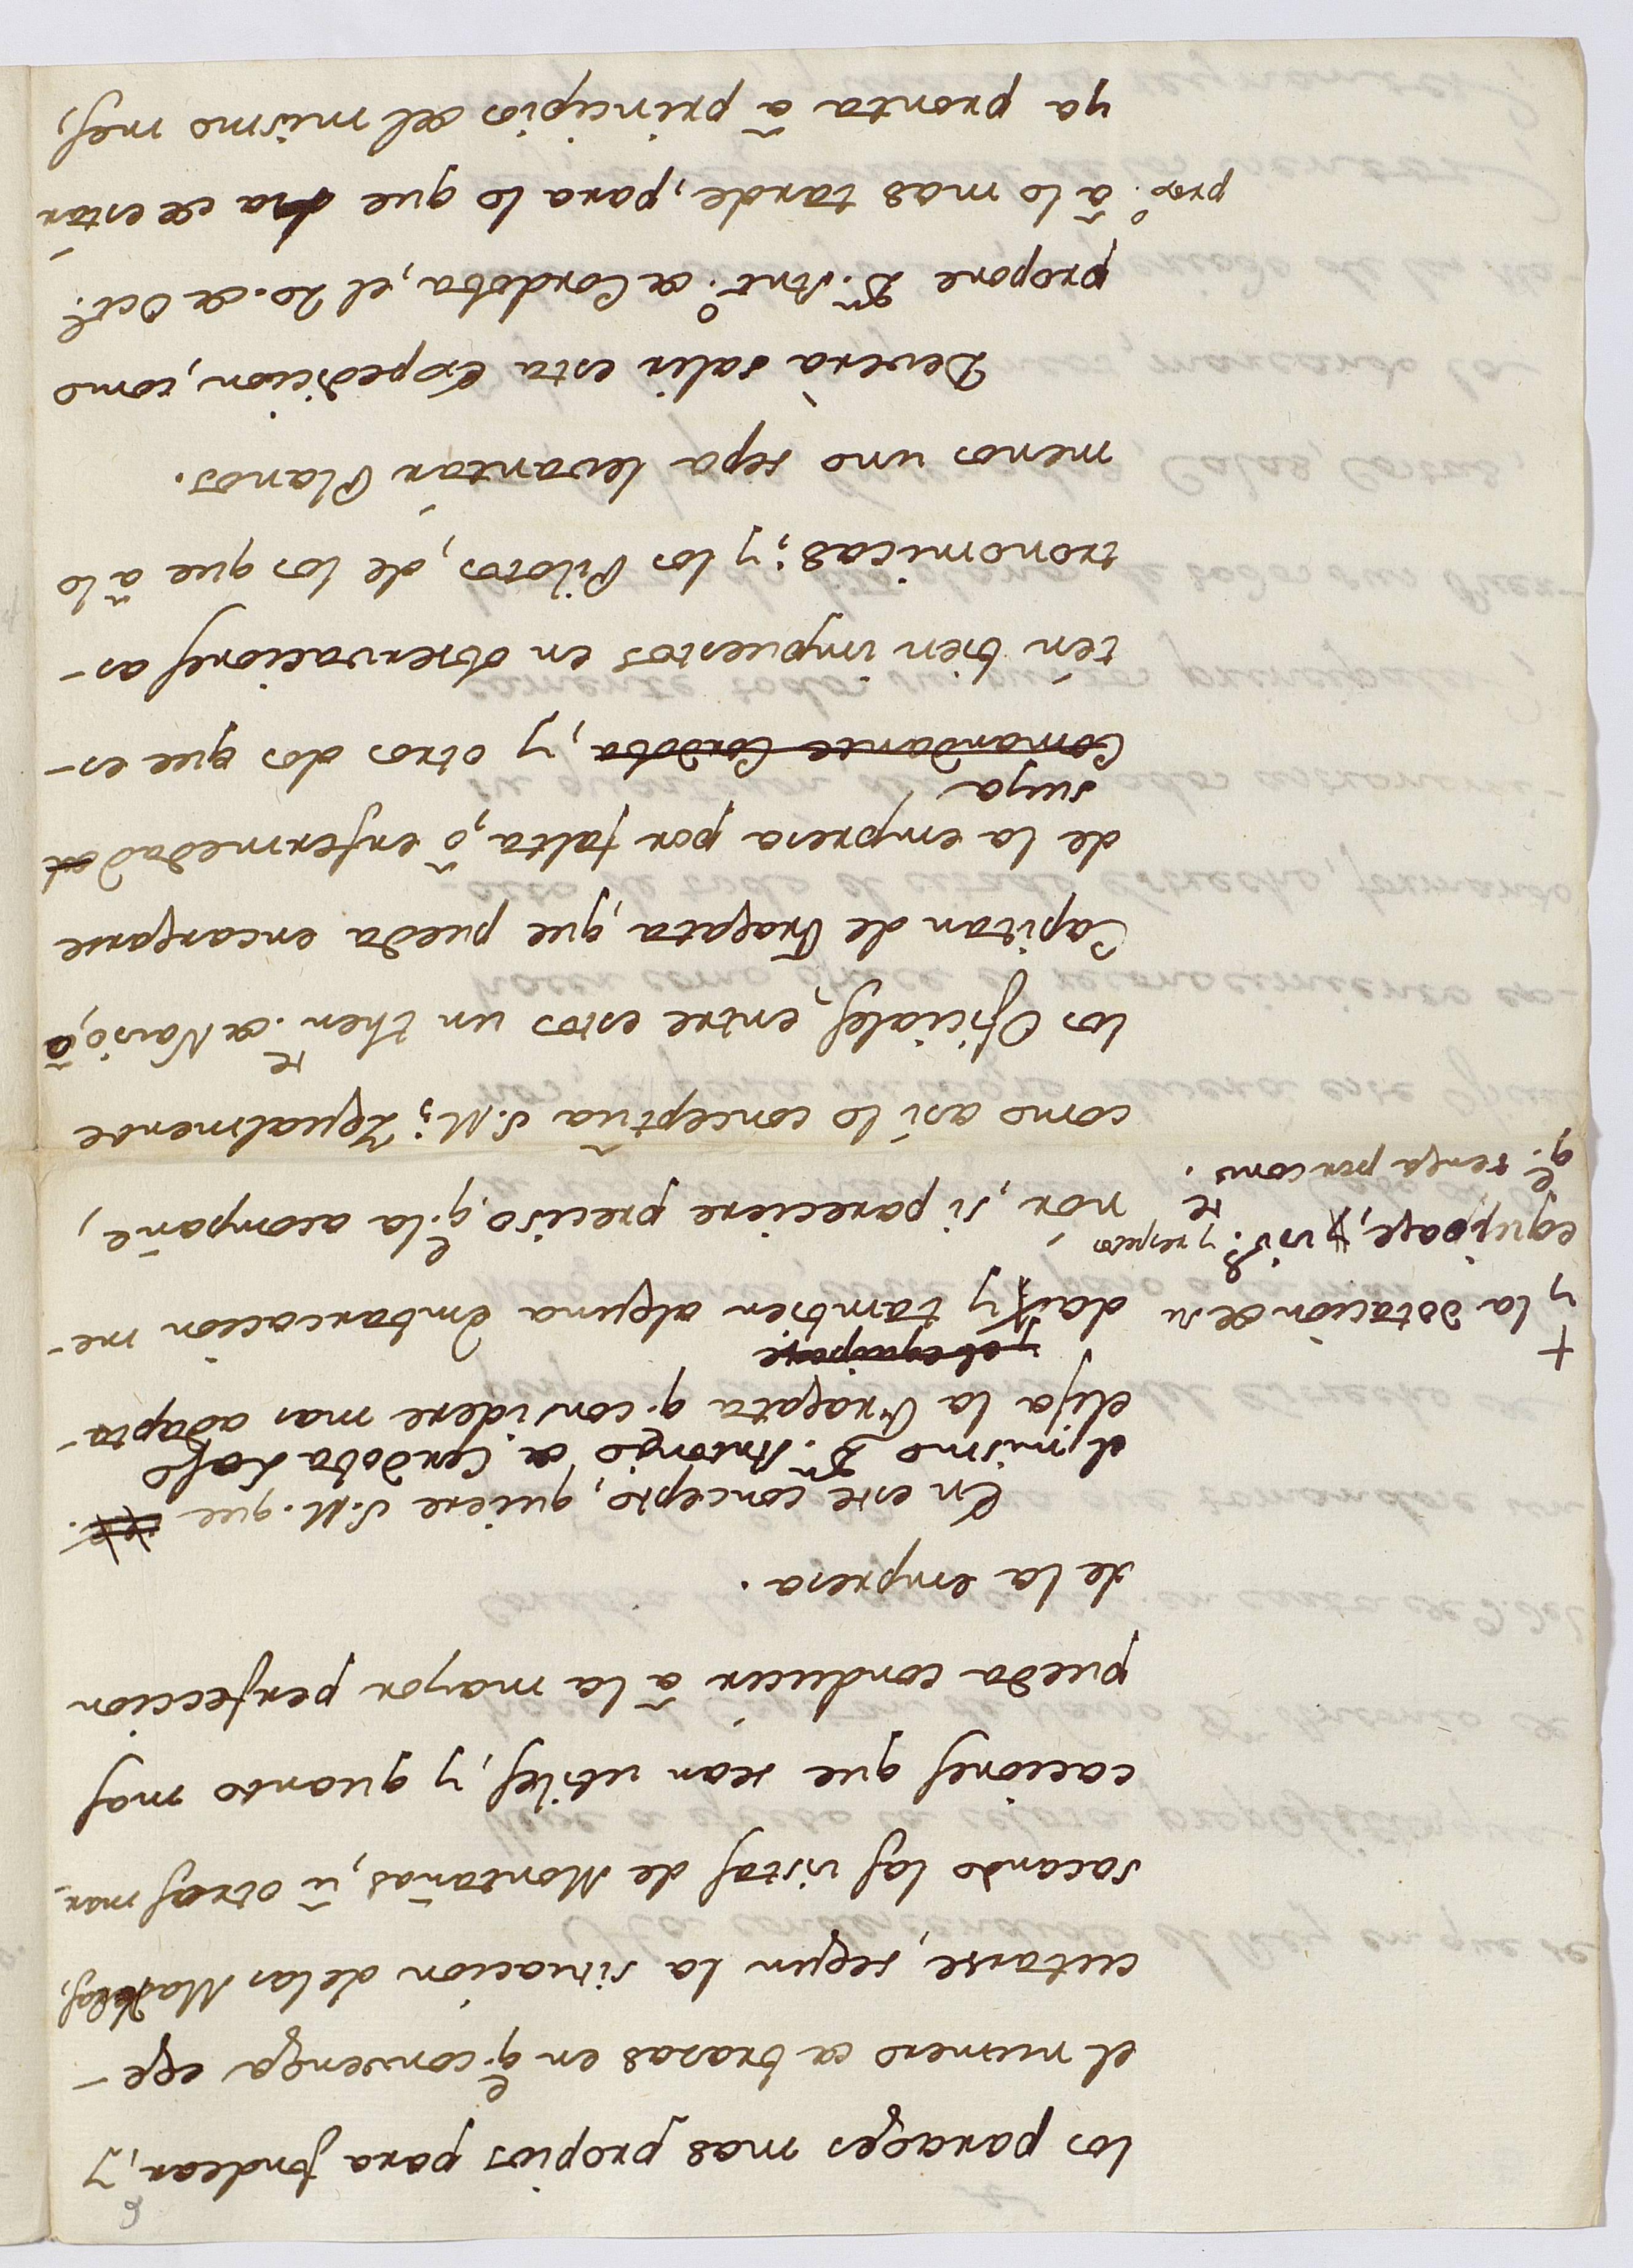 los parages mas propios para fondear, y
el numero de brazas en q.e convenga ege-
cutarse, segun la situacion de las Mareas,
sacando las vistas de Montañas, ũ otras mar-
caciones que sean utiles, y quanto mas
pueda conducir ã la mayor perfeccion
de la empresa.
En este concepto, quiere S.M. que
el mismo D.n Antonio de Cordoba Laso
elija la Fragata q. considere mas adapta-
y el equipage
da y tambien alguna Embarcacion me-
nor, si pareciere preciso q.e la acompañe,
+
y la dotacion de su
equipage, y vív.s y repuestos
q.e tenga por conv.te
como así lo conceptũa S.M.; Igualmente
los Oficiales, entre estos un Then.te de Navio, õ
Capitan de Fragata, que pueda encargarse
de la empresa por falta, õ enfermedad del
suya
Comandante Cordoba, y otros dos que es-
tén bien impuestos en observaciones as-
tronomicas; y los Pilotos, de los que ã lo
menos uno sepa levantar Planos.
Deverà salir esta Expedicion, como
propone D.n Ant.o de Cordoba, el 20. de Oct.e
prox.o ã lo mas tarde, para lo que ha de estar
ya pronta ã principios del mismo mes,